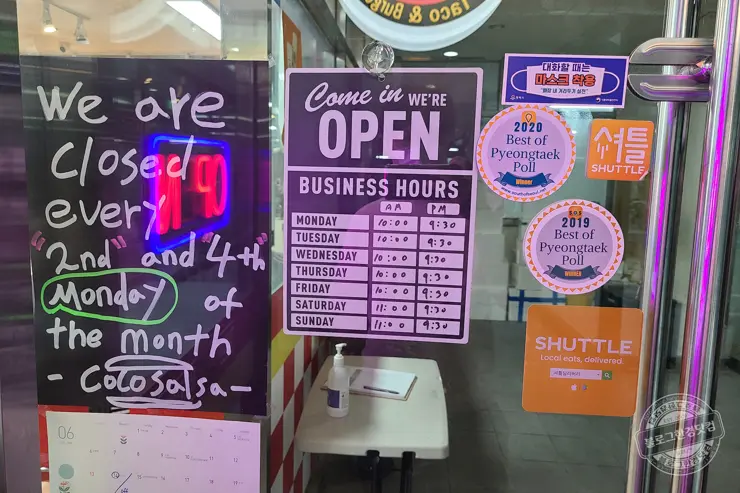 We are
Closed
every
"2nd" and "4th
Monday of
the month
- Cocosalsa -
06
Taco & Burr
Come in WE'RE
OPEN
BUSINESS HOURS
AM PM
MONDAY 10:00 9:30
TUESDAY 10:00 9:30
WEDNESDAY 10:00 9:30
THURSDAY 10:00 9:30
FRIDAY 10:00 9:30
SATURDAY 11:00 9:30
SUNDAY 11:00 9:30
대화할 때는
마스크 착용
2020
Best of
Pyeongtaek
Poll
Winner
셔틀
SHUTTLE
2019
Best of
Pyeongtaek
Poll
WINNER
SHUTTLE
Local eats, delivered.